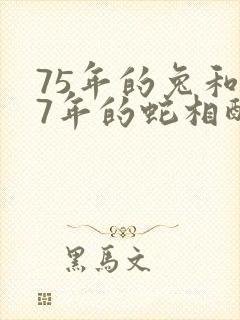 75年的兔和
7年的蛇相配
黑馬文